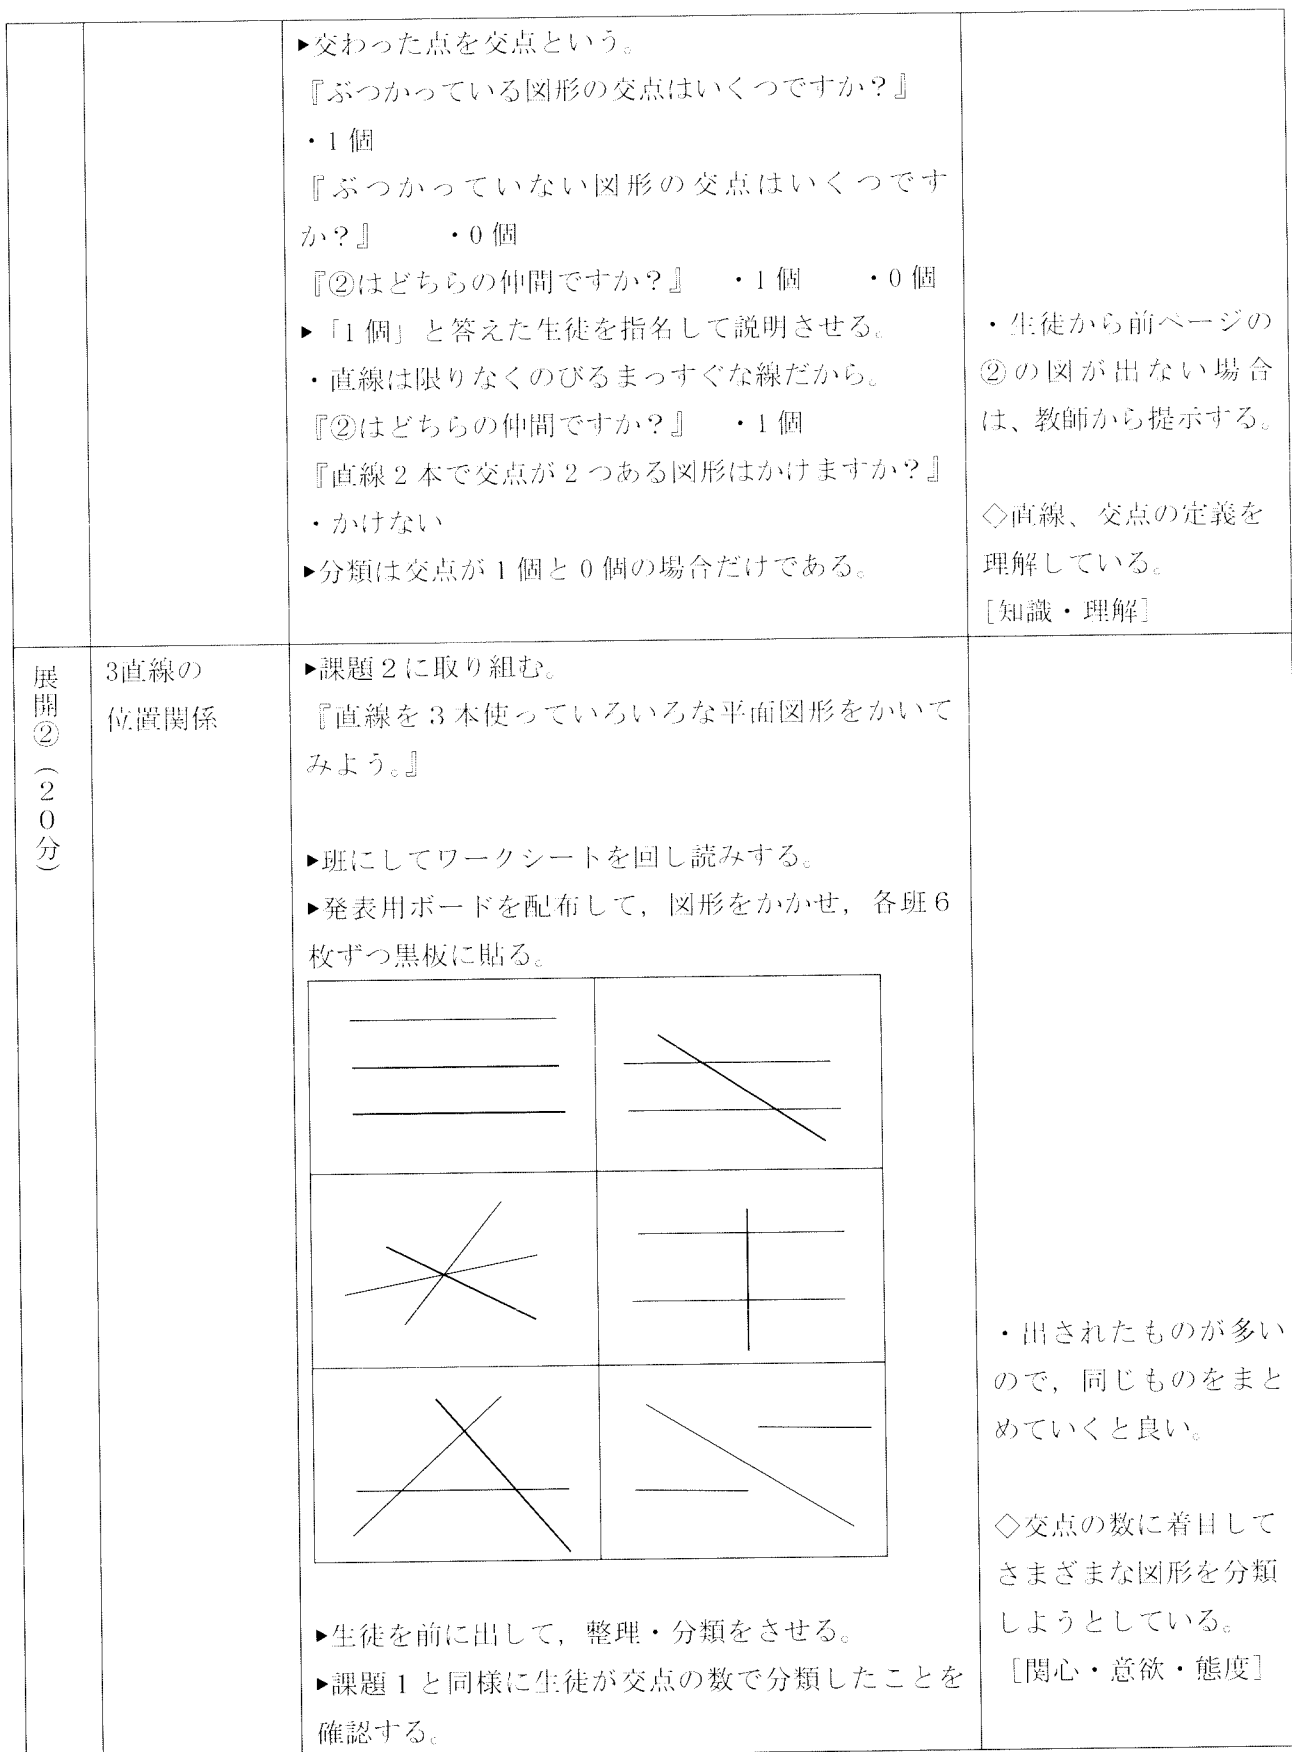 ▶交わった点を交点という。
『ぶつかっている図形の交点はいくつですか？』
・1個
『ぶつかっていない図形の交点はいくつです
か？』　・0個
『②はどちらの仲間ですか？』　・1個　・0個
▶「1個」と答えた生徒を指名して説明させる。
・直線は限りなくのびるまっすぐな線だから。
『②はどちらの仲間ですか？』　・1個
『直線2本で交点が2つある図形はかけますか？』
・かけない
▶分類は交点が1個と0個の場合だけである。
・生徒から前ページの
②の図が出ない場合
は、教師から提示する。
◇直線、交点の定義を
理解している。
［知識・理解］
展開②（20分）
3直線の
位置関係
▶課題2に取り組む。
『直線を3本使っていろいろな平面図形をかいて
みよう。』
▶班にしてワークシートを回し読みする。
▶発表用ボードを配布して，図形をかかせ，各班6
枚ずつ黒板に貼る。
▶生徒を前に出して，整理・分類をさせる。
▶課題1と同様に生徒が交点の数で分類したことを
確認する。
・出されたものが多い
ので，同じものをまと
めていくと良い。
◇交点の数に着目して
さまざまな図形を分類
しようとしている。
［関心・意欲・態度］